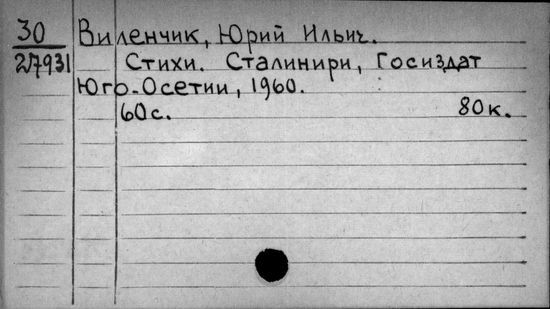 30 Виленчик, Юрий Ильич.
2/7931 Стихи. Сталинири, Госиздат
Юго-Осетии, 1960.
60с. 80к.